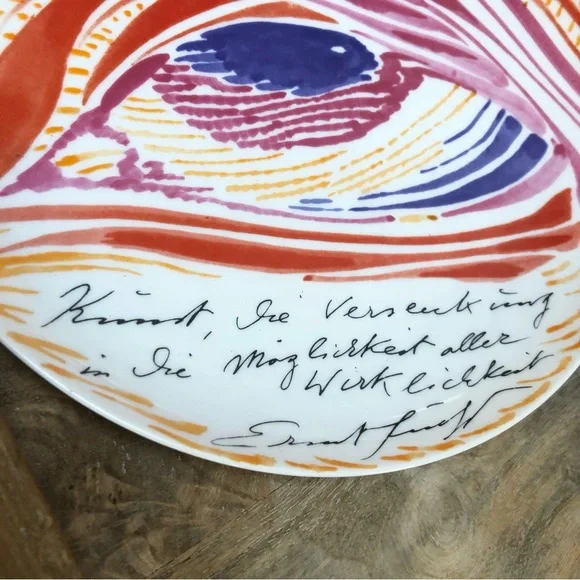 Kunst, die Versenkung
in die Möglichkeit aller
Wirklichkeit
Ernst Fuchs